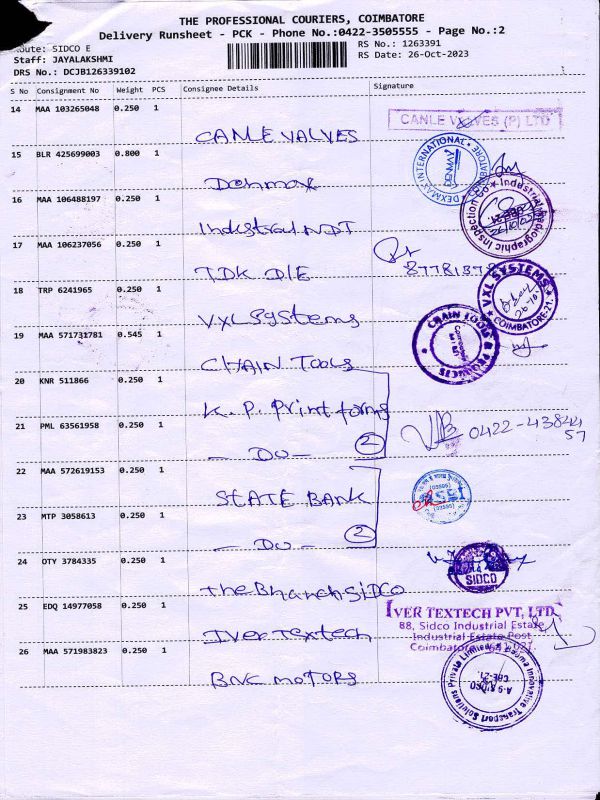 THE PROFESSIONAL COURIERS, COIMBATORE
Delivery Runsheet - PCK - Phone No.:0422-3505555 - Page No.:2
Route: SIDCO E
Staff: JAYALAKSHMI
DRS No.: DCJB126339102
RS No.: 1263391
RS Date: 26-Oct-2023
S No Consignment No Weight PCS Consignee Details Signature
14 MAA 103265048 0.250 1
CANLE VALVES
CANLE VALVES (P) LTD
15 BLR 425699003 0.800 1
Denmax
DEXMAX INTERNATIONAL COIMBATORE
16 MAA 106488197 0.250 1
Industrial NDT
Industrial Radiographic Inspection Co
17 MAA 106237056 0.250 1
TDK DIE
18 TRP 6241965 0.250 1
VXL Systems
VXL SYSTEMS COIMBATORE-21
19 MAA 571731781 0.545 1
CHAIN TOOLS
CHAIN TOOLS & PRODUCTS
20 KNR 511866 0.250 1
K. P. Print forms
21 PML 63561958 0.250 1
- Do - 2
0422-43844
57
22 MAA 572619153 0.250 1
STATE BANK
23 MTP 3058613 0.250 1
- Do - 2
24 OTY 3784335 0.250 1
The Branch SIDCO
SIDCO
25 EDQ 14977058 0.250 1
Iver Textech
IVER TEXTECH PVT, LTD
88, Sidco Industrial Estate
Industrial Estate Post
Coimbatore - 641 021.
26 MAA 571983823 0.250 1
BNC MOTORS
Innovative Transport Solutions Private Limited